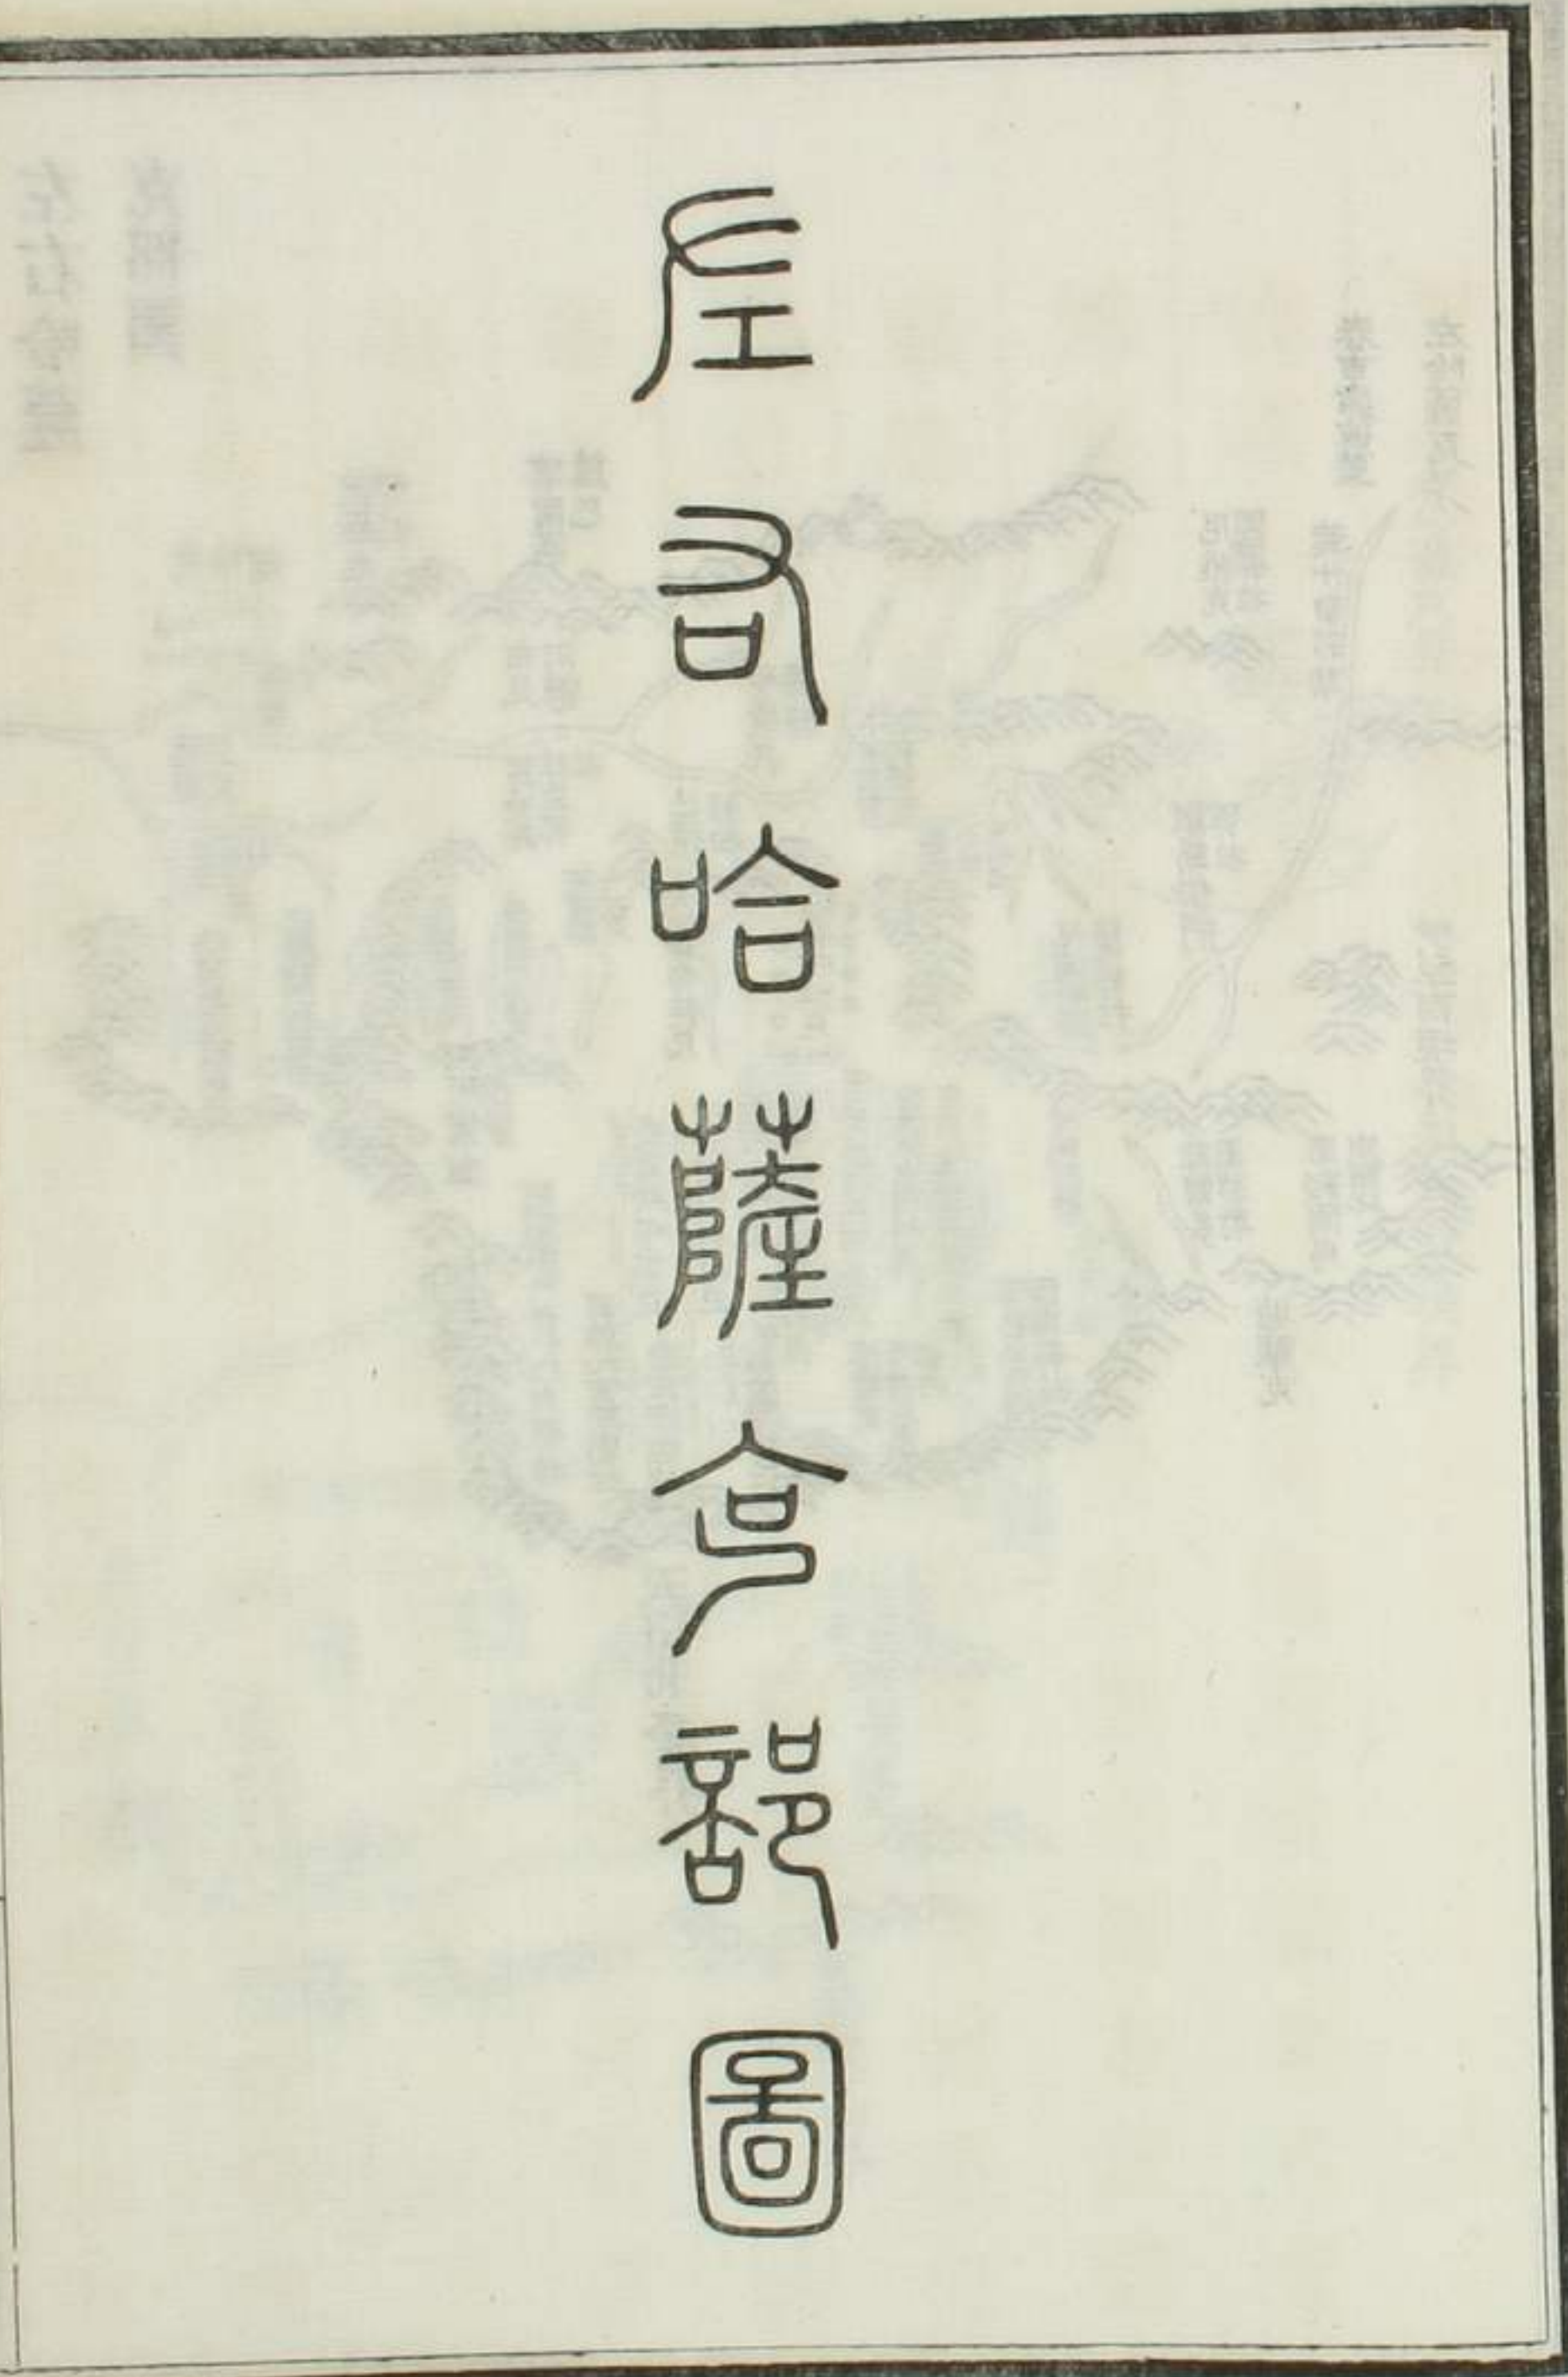 左右哈薩克部圖